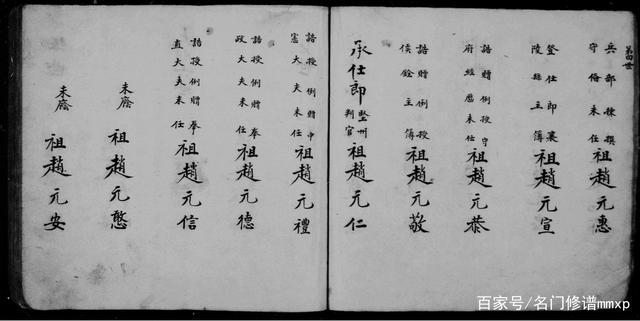 第四世
兵部候撰
守備未任
祖趙元惠
登仕郎襄
陵縣主簿
祖趙元宣
誥贈例授守
府經歷未任
祖趙元恭
誥贈例授
候銓主簿
祖趙元敬
承仕郎
墊州
判官
祖趙元仁
誥授例贈中
憲大夫未任
祖趙元禮
誥授例贈奉
政大夫未任
祖趙元德
誥授例贈奉
直大夫未任
祖趙元信
未廕
祖趙元憨
未廕
祖趙元安
百家号/名门修谱mmxp